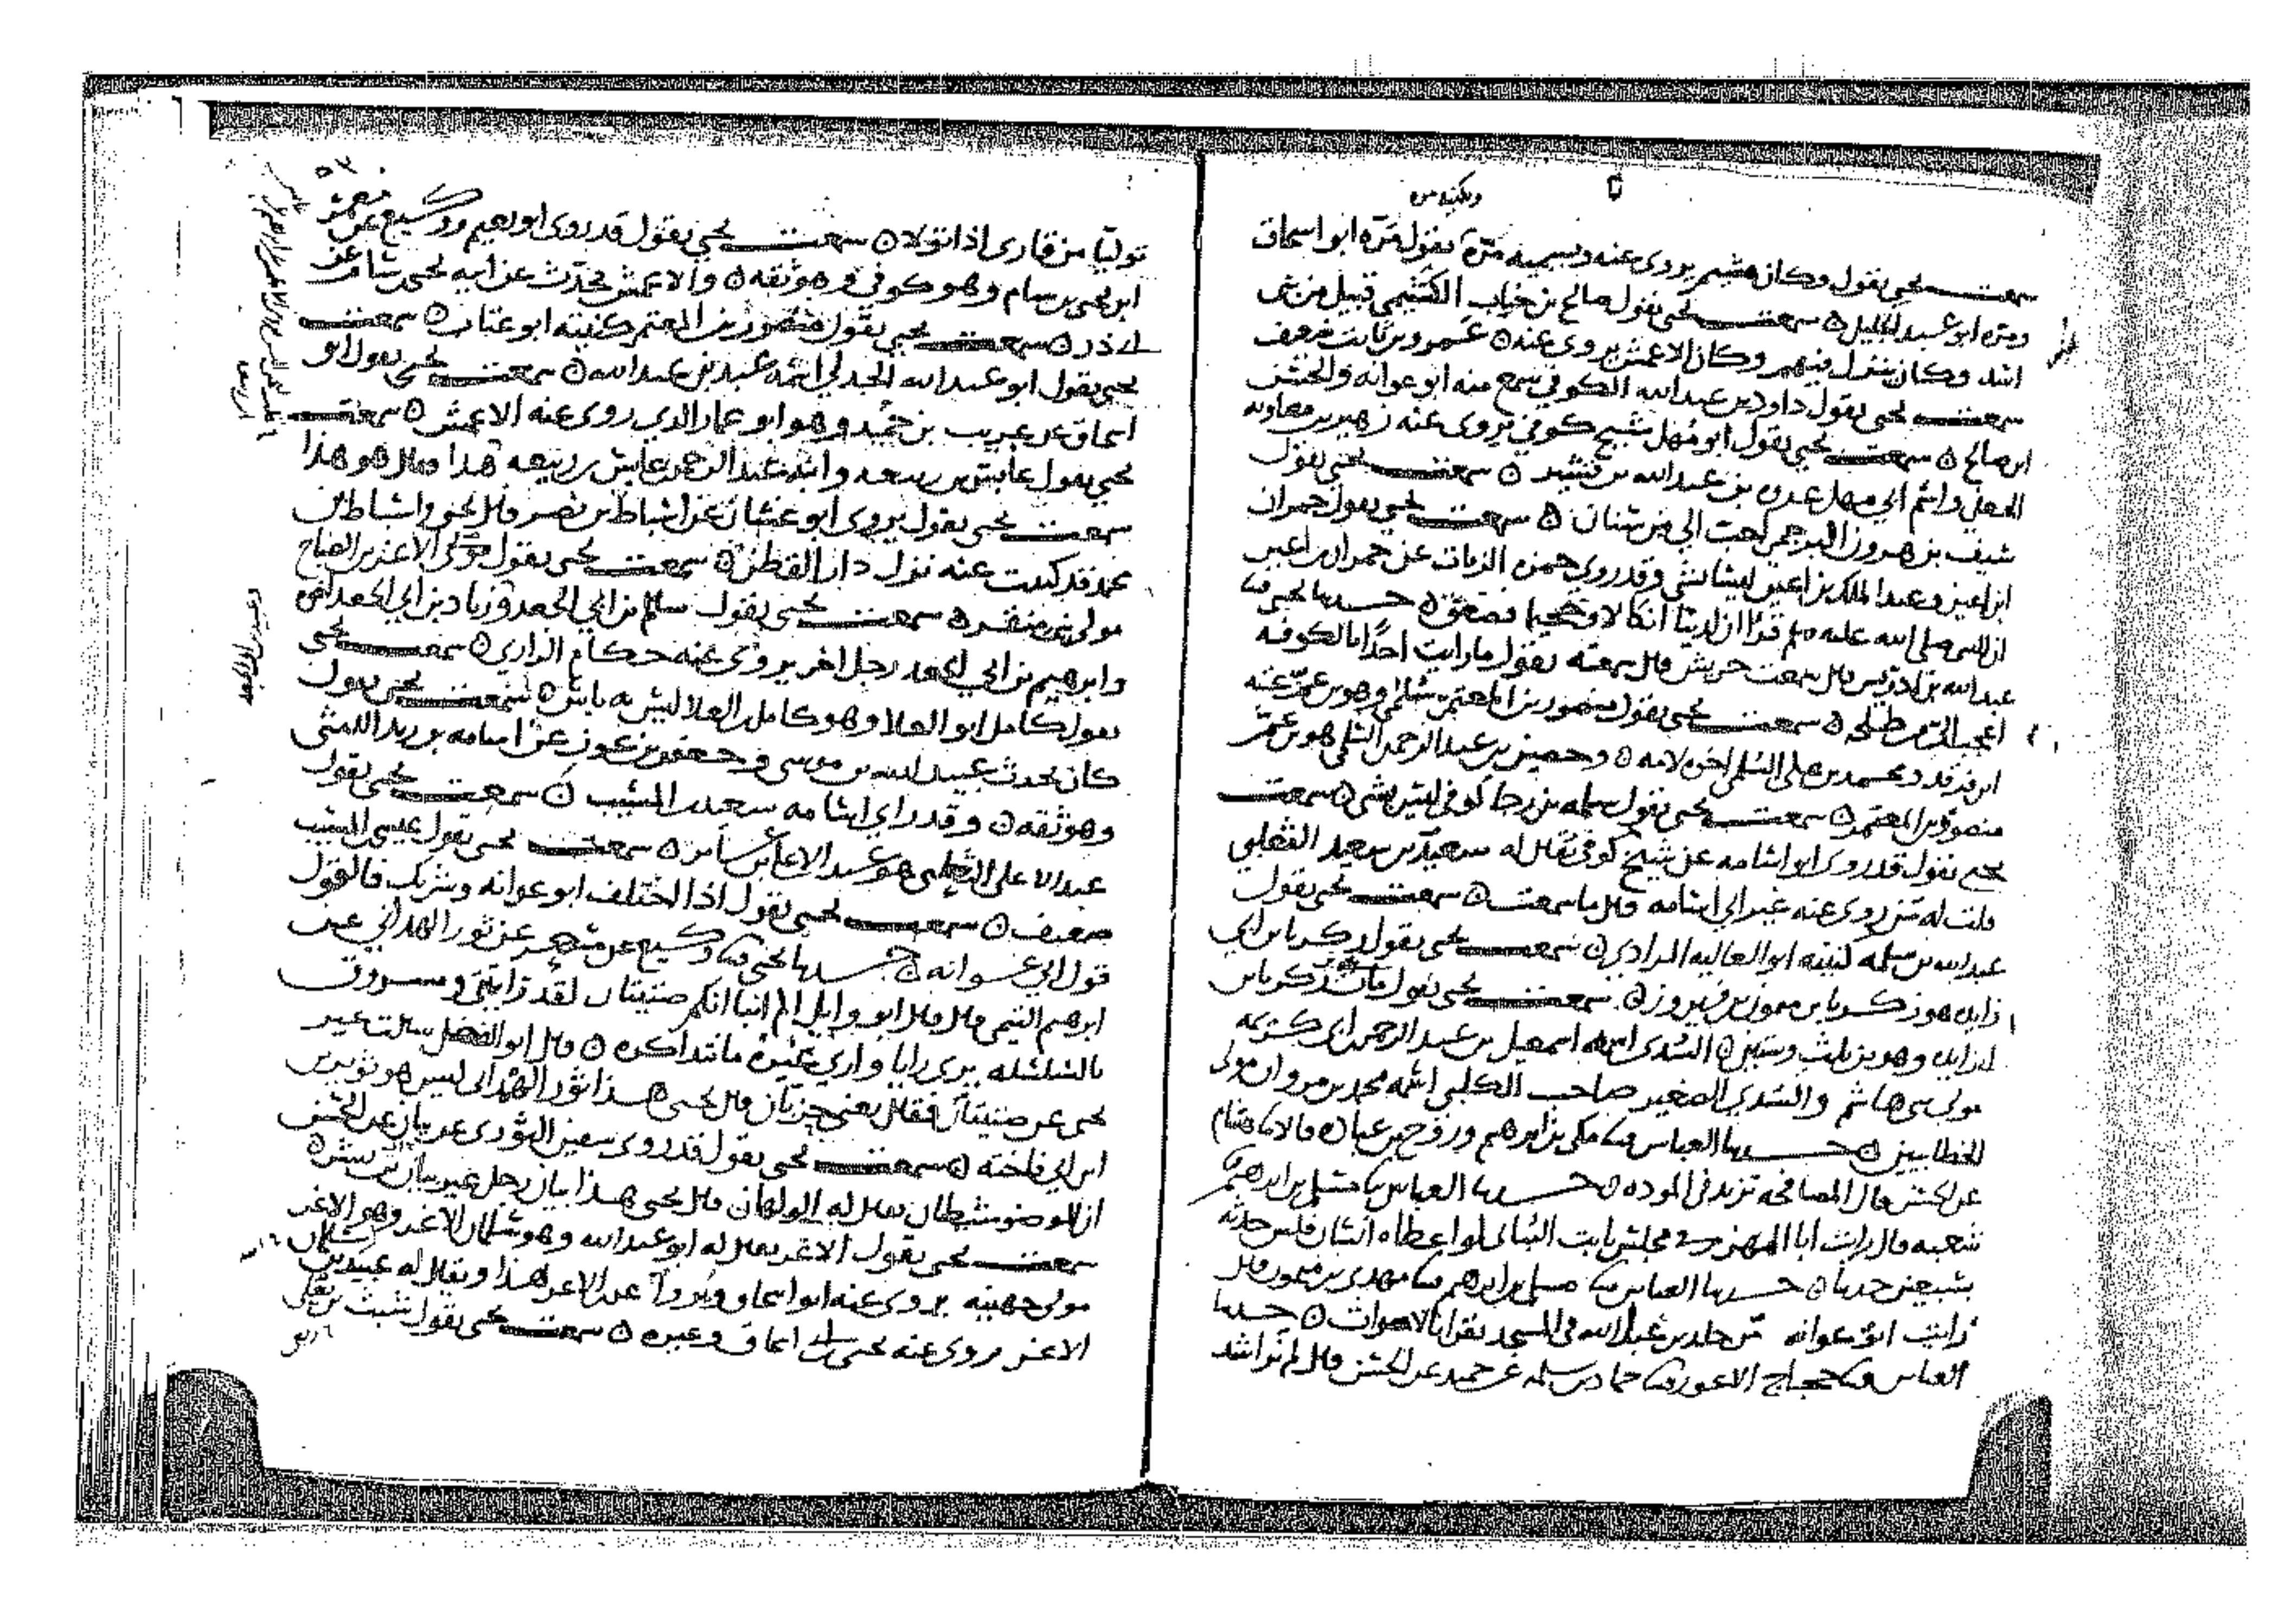 ويكنيه مرة
سمعت يحيى يقول وكان هشيم يروى عنه ويسميه مرة يقول مرة ابو اسحاق
ومره ابو عبد الجليل ٥ سمعت يحيى يقول صالح بن خباب قبيل من بنى
اسد وكان ينزل فيهم وكان الاعمش يروى عنه ٥ عمرو بن ثابت ضعيف
سمعت يحيى يقول داود بن عبد الله الكوفي سمع منه ابو عوانه والحسن
ابن صالح ٥ سمعت يحيى يقول ابو مهل شيخ كوفي يروى عنه زهير بن معاويه
الجعفي واسم ابي مهل عروه بن عبد الله بن قشير ٥ سمعت يحيى يقول
سيف بن هرون البرجمي احب الي من سنان ٥ سمعت يحيى يقول حمران
ابن اعين وعبد الملك بن اعين ليسا بشى وقد روى حمزه الزيات عن حمران بن اعين
ان النبى صلى الله عليه وسلم قرا ان لدينا انكالا وجحيما فصعق ٥ حدثنا يحيى نا
عبد الله بن ادريس قال سمعت حريش قال سمعته يقول ما رايت احدا بالكوفه
اعجب الى من طلحه ٥ سمعت يحيى يقول منصور بن المعتمر سلمي وهو من عتبه
ابن فرقد ومحمد بن على السلمي اخوه لامه ٥ وحصين بن عبد الرحمن السلمي هو بن عم
منصور بن المعتمر ٥ سمعت يحيى يقول سلمه بن رجا كوفي ليس بشى ٥ سمعت
يحيى يقول قد روى ابو اسامه عن شيخ كوفي يقال له سعيد بن سعيد التغلبي
قلت له من روى عنه غير ابي اسامه قال ما سمعت ٥ سمعت يحيى يقول
عبد الله بن سلمه كنيته ابو العاليه المرادي ٥ سمعت يحيى يقول زكريا بن ابي
زايده هو زكريا بن ميمون بن فيروز ٥ سمعت يحيى يقول مات زكريا بن
ابي زايده وهو بن ثلث وستين ٥ السدي اسمه اسمعيل بن عبد الرحمن بن ابي كريمه
مولى بنى هاشم والسدي الصغير صاحب الكلبي اسمه محمد بن مروان مولى
الخطابيين ٥ حدثنا العباس نا مكى بن ابرهيم وروح بن عباده قالا نا هشام
عن الحسن قال المصافحه تزيد في الموده ٥ حدثنا العباس نا مسلم بن ابرهيم نا
شعبه قال رايت ابا المهزم في مجلس ثابت البناني لو اعطاه انسان فلس حدثه
بسبعين حديثا ٥ حدثنا العباس نا مسلم بن ابرهيم نا مهدي بن ميمون قال
رايت ابو عوانه مر خالد بن عبد الله في المسجد يقرا بالاصوات ٥ حدثنا
العباس نا حجاج الاعور نا حماد بن سلمه عن حميد عن الحسن قال لم نر اشد
٥٣
توليا من قارى اذا تولا ٥ سمعت يحيى يقول قد روى ابو نعيم ووكيع عن
ابن يحيى بن سام وهو كوفي وهو ثقه ٥ والاعمش يحدث عن ابيه يحيى بن سام عن
ابي ذر ٥ سمعت يحيى يقول منصور بن المعتمر كنيته ابو عتاب ٥ سمعت
يحيى يقول ابو عبد الله الجدلي اسمه عبد بن عبد الله ٥ سمعت يحيى يقول ابو
اسحاق عن عريب بن حميد وهو ابو عمار الذي روى عنه الاعمش ٥ سمعت
يحيى يقول عابس بن ربيعه وابنه عبد الرحمن بن عابس بن ربيعه هذا قال هو هذا
سمعت يحيى يقول يروى ابو غسان عن اسباط بن نصر قال يحيى واسباط بن
محمد قد كتبت عنه نزل دار القطن ٥ سمعت يحيى يقول الاغر بن الصباح
مولى بنى منقر ٥ سمعت يحيى يقول سالم بن ابي الجعد وزياد بن ابي الجعد اخوه
وابرهيم بن ابي الجعد رجل اخر يروى عنه حكام الرازي ٥ سمعت يحيى
يقول كامل ابو العلا وهو كامل بن العلا ليس به باس ٥ سمعت يحيى يقول
كان يحدث عبيد الله بن موسى وجعفر بن عون عن اسامه بن زيد الليثى
وهو ثقه ٥ وقد راى اسامه سعيد بن المسيب ٥ سمعت يحيى يقول
عبد الاعلى الثعلبي هو عبد الاعلى بن عامر ٥ سمعت يحيى يقول عيسى بن المسيب
ضعيف ٥ سمعت يحيى يقول اذا اختلف ابو عوانه وشريك فالقول
قول ابي عوانه ٥ حدثنا يحيى نا وكيع عن مسعر عن ثور الهمداني عن
ابرهيم التيمي قال قال ابو وايل لقد رايتنى ومسروق
بالسلسله ٥ قال ابو الفضل سالت
يحيى عن فقال يعنى قال يحيى هذا ثور الهمداني ليس هو ثوير بن
ابي فاخته ٥ سمعت يحيى يقول قد روى سفين الثوري عن بيان عن الحسن
ان للوضو شيطان يقال له الولهان قال يحيى هذا بيان رجل غير بيان بن بشر ٥
سمعت يحيى يقول الاغر يقال له ابو عبد الله وهو سلمان الاغر وهو الاغر
مولى جهينه يروى عنه ابو اسحاق عن الاغر هذا ويقال له عبيد بن سلمان
الاغر يروى عنه يحيى بن ابي اسحاق وغيره ٥ سمعت يحيى يقول شبث بن ربعي